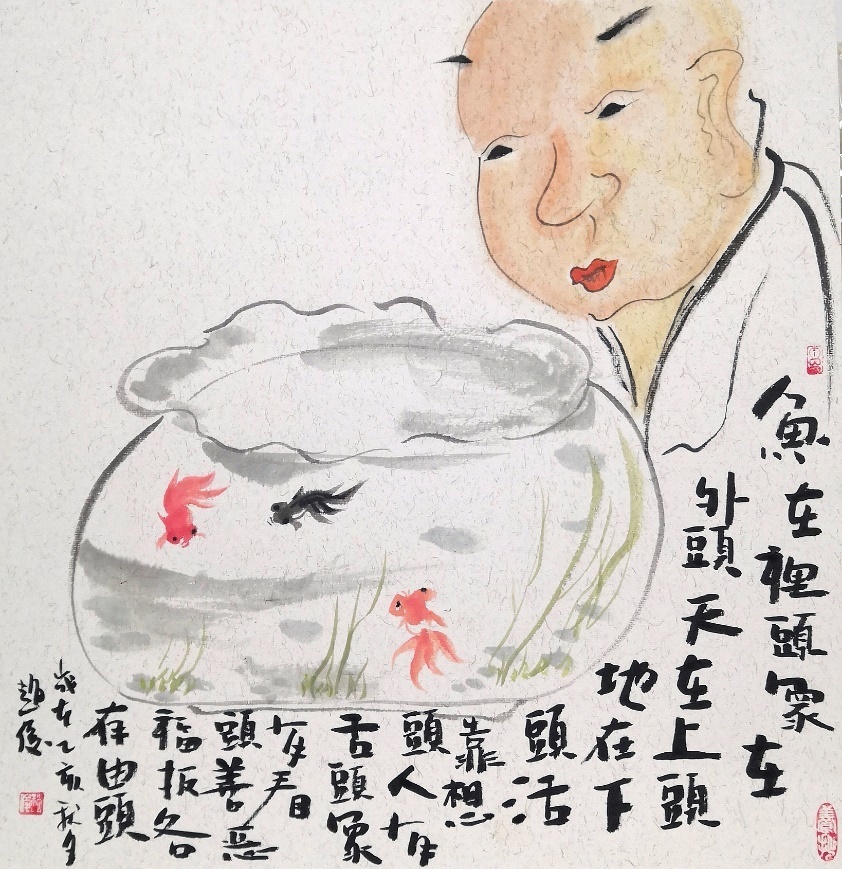 魚在裡頭 在
外頭天在上頭
地在下
頭活
靠想
頭人有
舌頭
有眉
頭善惡
福报各
存由頭
歲在乙亥秋月
趙